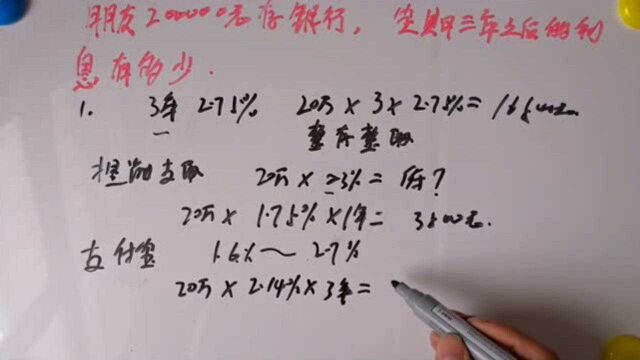 朋友200000元存银行，定期三年之后的利
息有多少．
1. 3年 2.75% 20万×3×2.75%=16500元
整存整取
提前支取 20万×  3%=  ?
20万×1.75%×1年=3500元.
支付宝 1.6%～2.7%
20万×2.14%×3年=